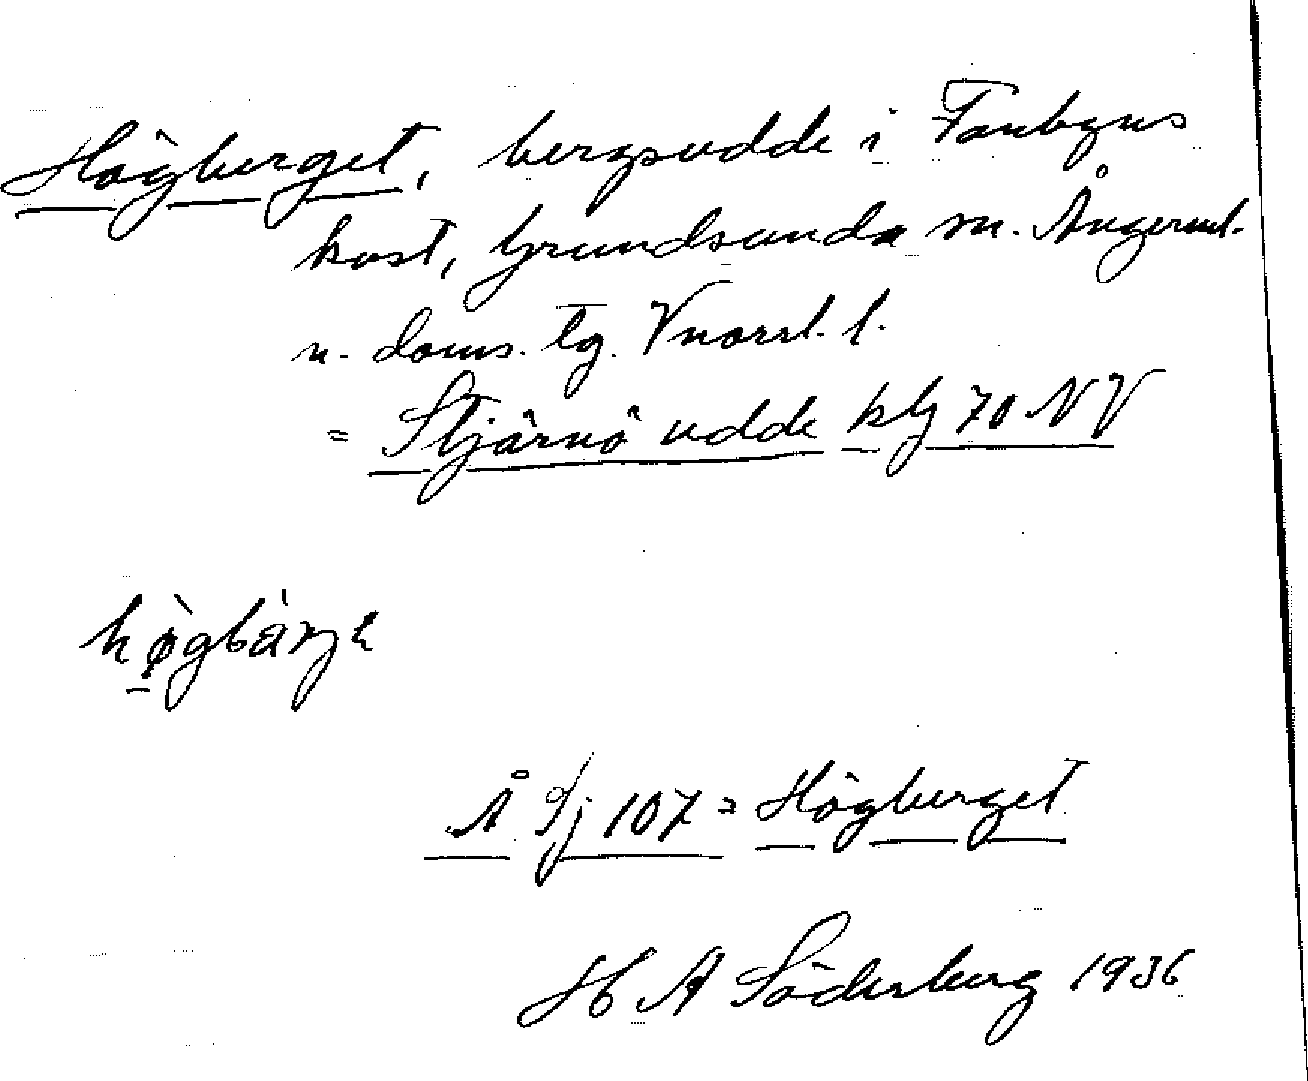 Högberget, bergsudde i Fanbyns
kust, Grundsunda sn. Ångerml.
n. doms. tg. Vnorrl. l.
= Stjärnö udde blj 70 NV
høgbärjə
Å Sj 107 = Högberget
H A Söderberg 1936